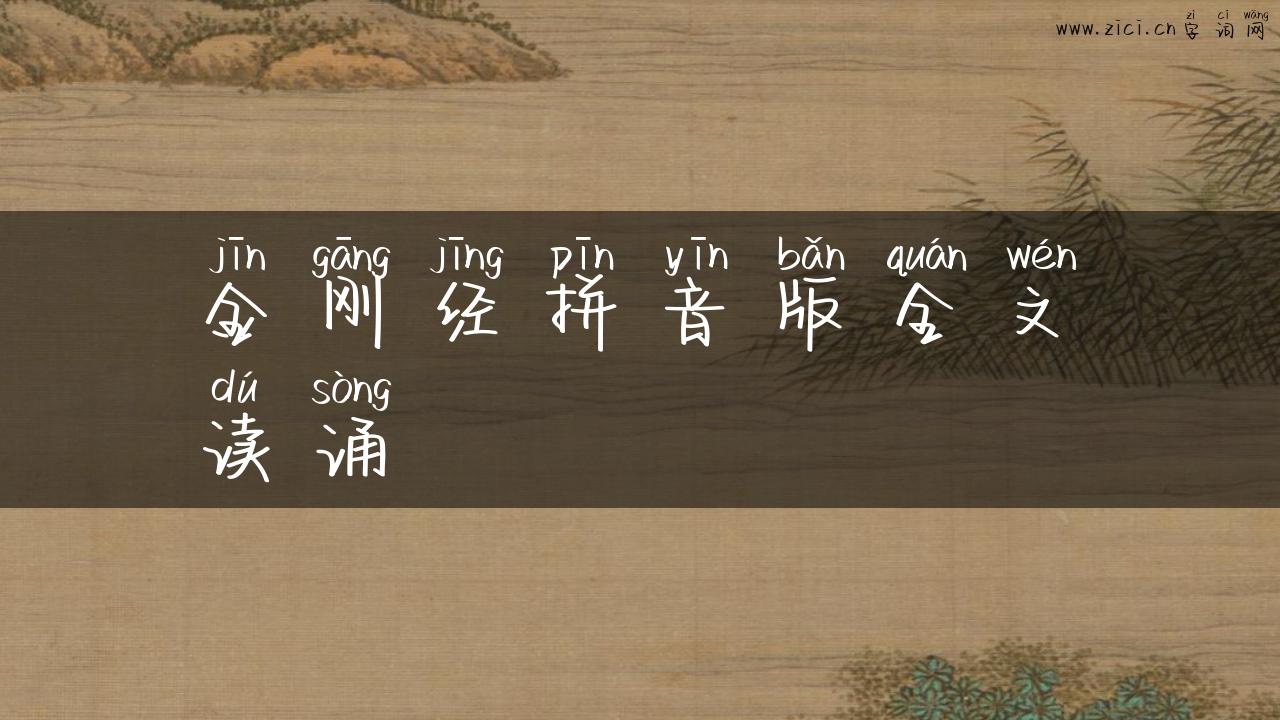 zi cí wǎng
www.zici.cn 字 词 网
jīn gāng jīng pīn yīn bǎn quán wén
金 刚 经 拼 音 版 全 文
dú sòng
读 诵